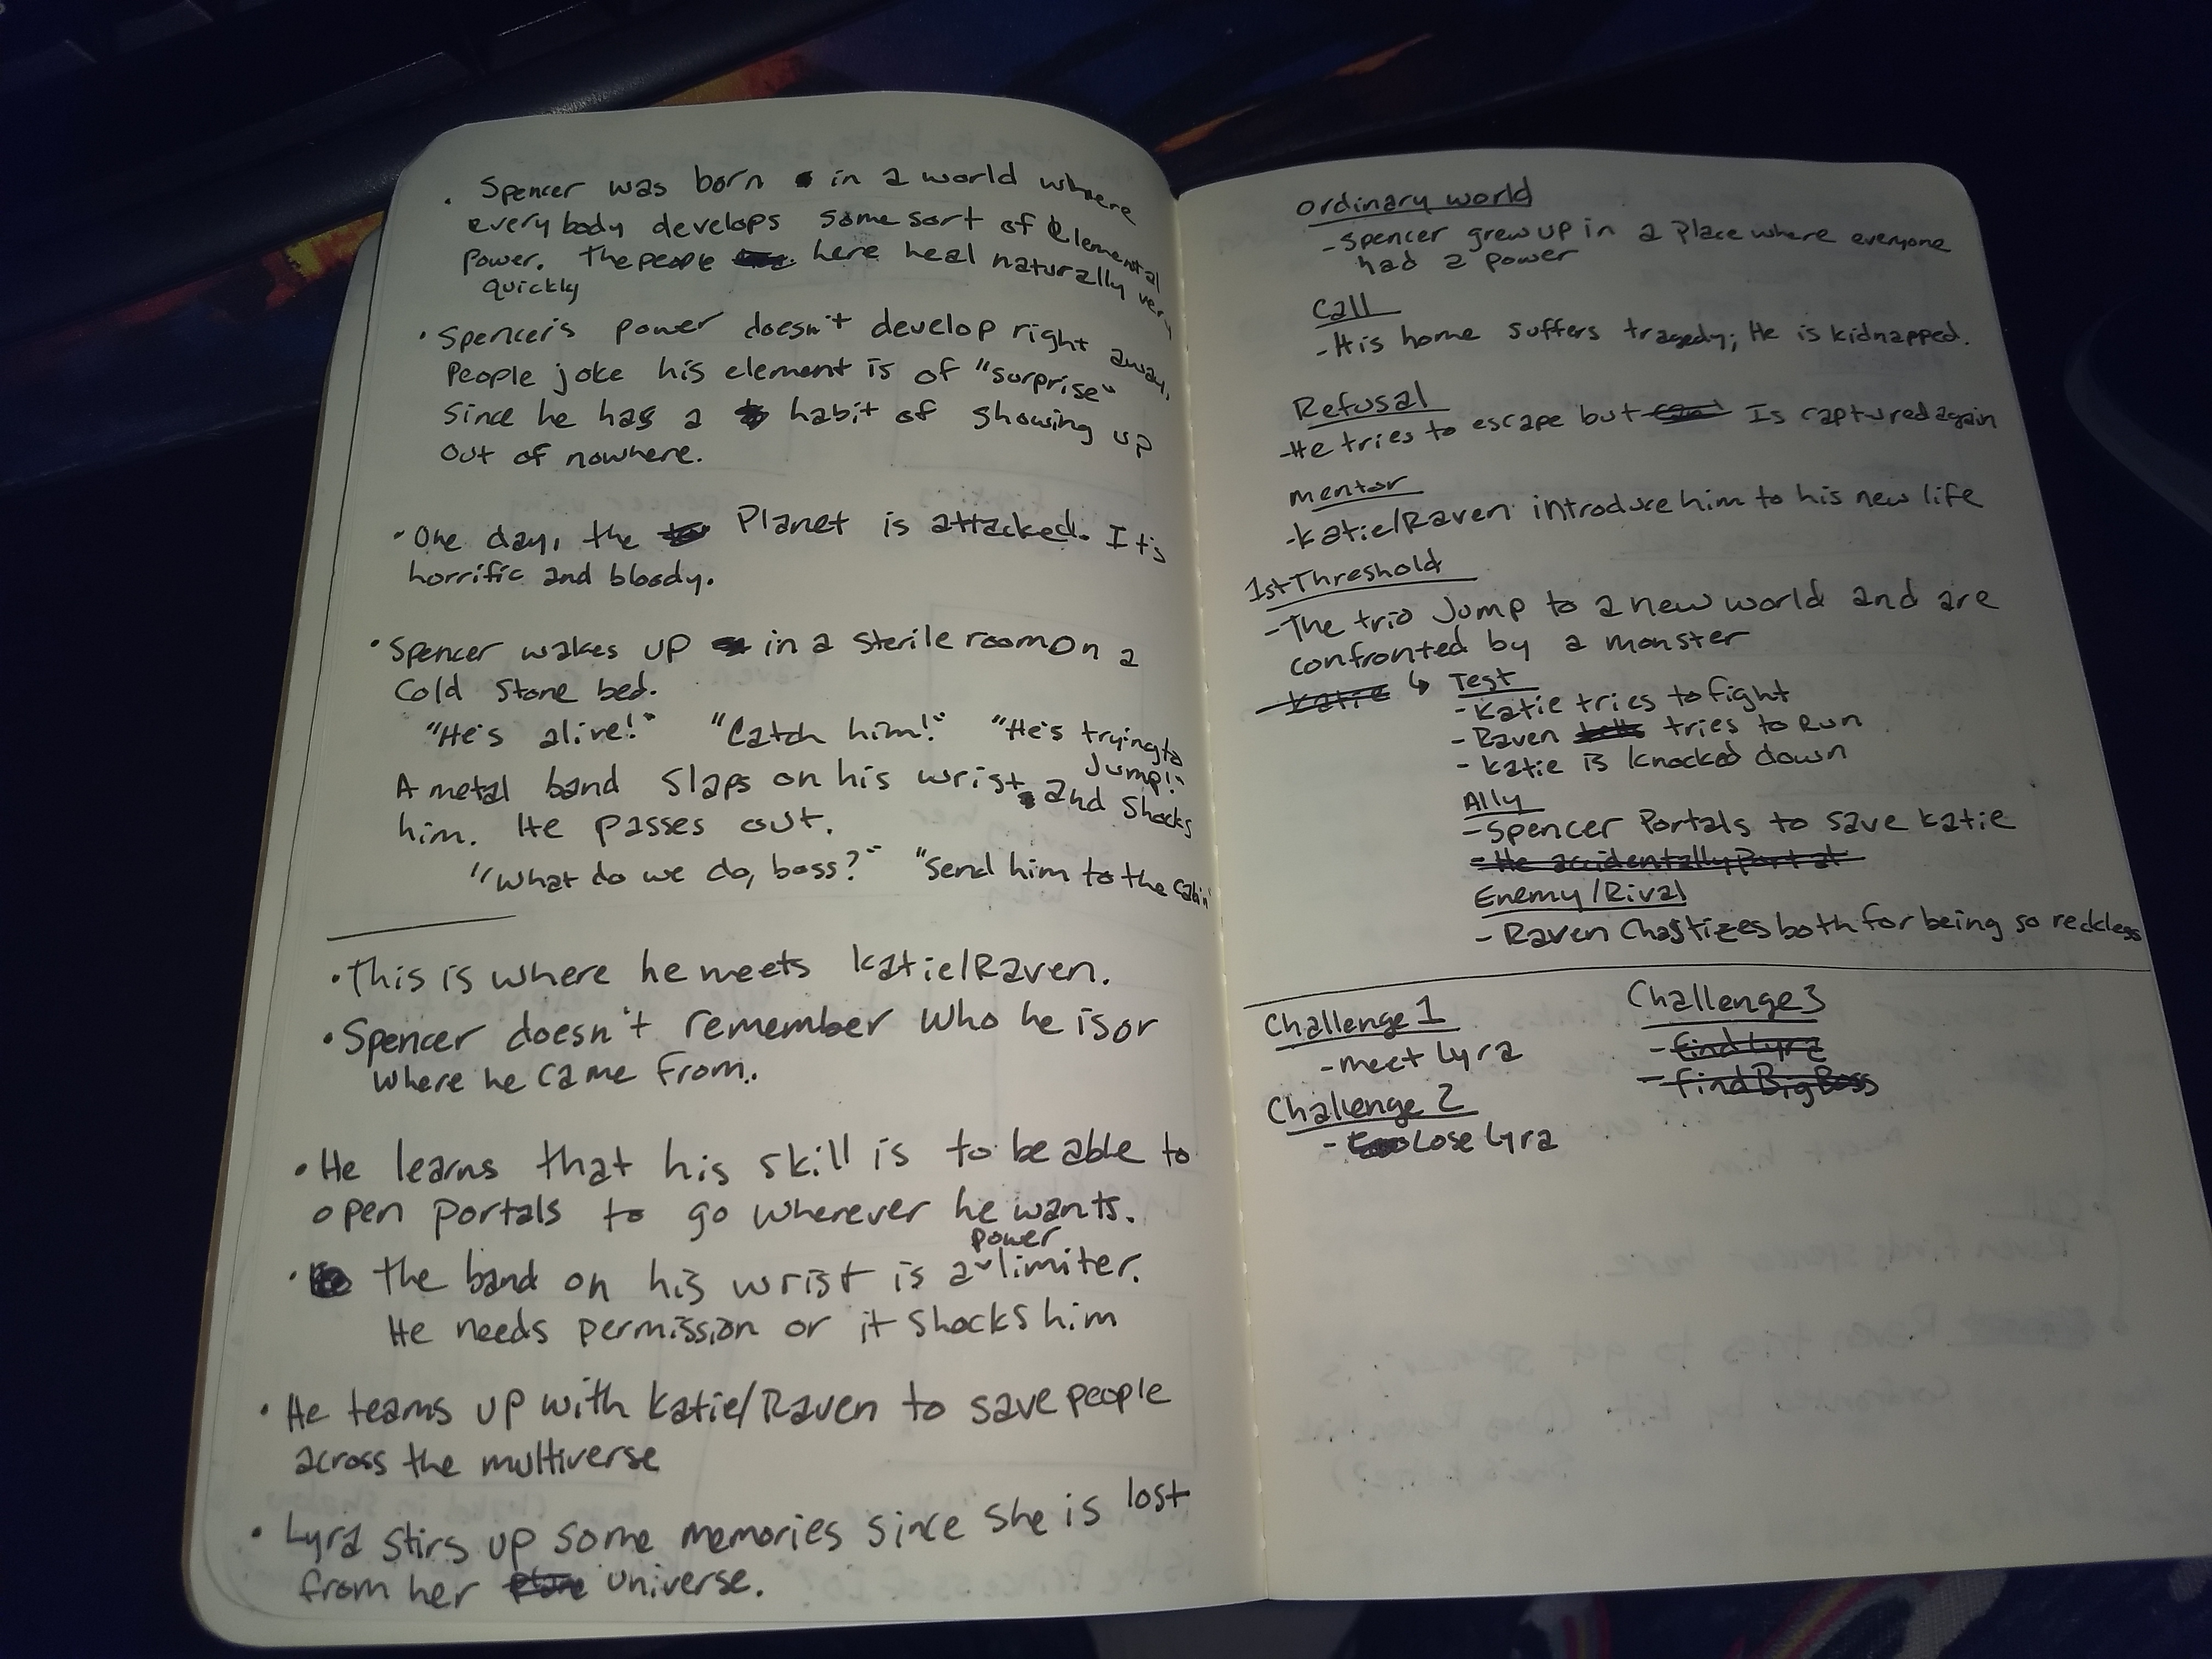 • Spencer was born in a world where
everybody develops some sort of Elemental
power. The people here heal naturally very
quickly
• Spencer's power doesn't develop right away,
People joke his element is of "surprise"
since he has a habit of showing up
out of nowhere.
• One day, the Planet is attacked. It's
horrific and bloody.
• Spencer wakes up in a sterile room on a
cold stone bed.
"He's alive!" "Catch him!" "He's trying to
Jump!"
A metal band slaps on his wrist and shocks
him. He passes out.
"What do we do, boss?" "Send him to the cabin"
• This is where he meets Katie/Raven.
• Spencer doesn't remember who he is or
where he came from.
• He learns that his skill is to be able to
open portals to go wherever he wants.
power
• the band on his wrist is a limiter.
He needs permission or it shocks him
• He teams up with Katie/Raven to save people
across the multiverse
• Lyra stirs up some memories since she is lost
from her universe.
Ordinary world
- Spencer grew up in a Place where everyone
had a power
Call
- His home suffers tragedy; He is kidnapped.
Refusal
- He tries to escape but Is captured again
mentor
- Katie/Raven introduce him to his new life
1st Threshold
- The trio Jump to a new world and are
confronted by a monster
Katie ↳ Test
- Katie tries to fight
- Raven tries to Run
- Katie is knocked down
Ally
- Spencer Portals to save Katie
- He accidentally portal
Enemy/Rival
- Raven Chastizes both for being so reckless
Challenge 1
- meet Lyra
Challenge 2
- Lose Lyra
Challenge 3
- find Lyra
- find Big Boss